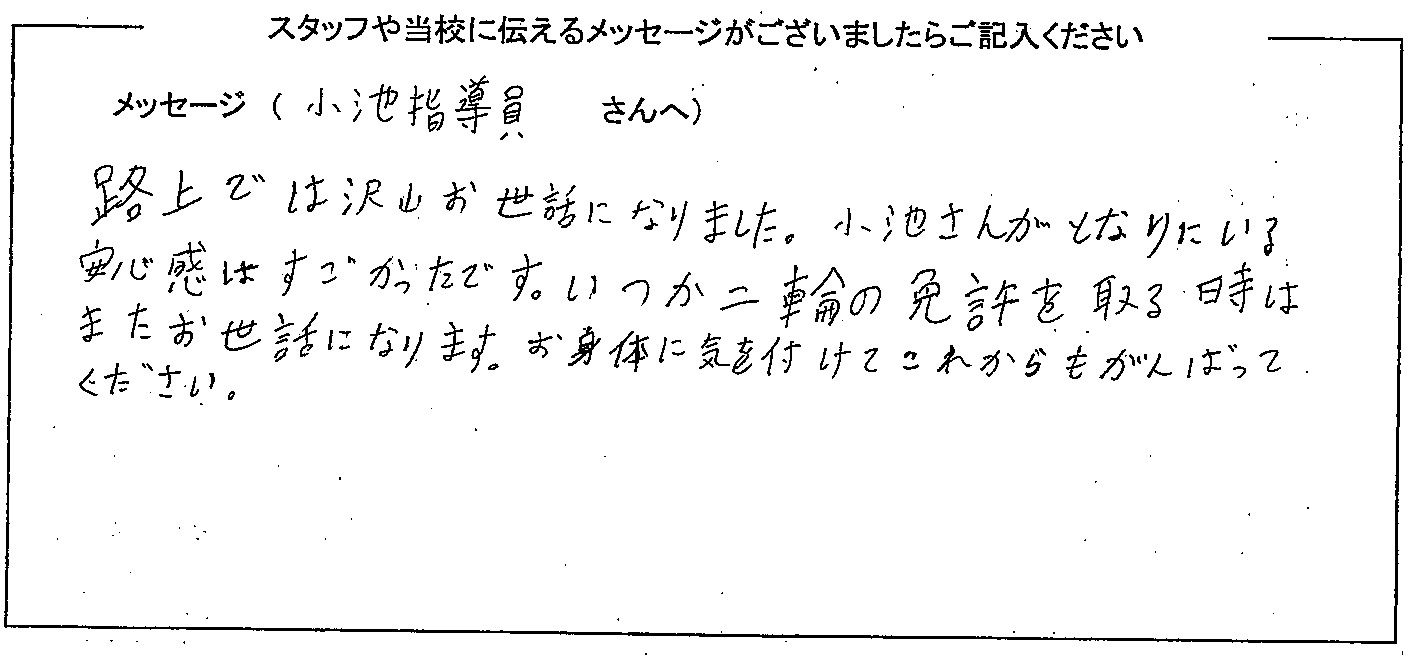 スタッフや当校に伝えるメッセージがございましたらご記入ください
メッセージ（小池指導員　さんへ）
路上では沢山お世話になりました。小池さんがとなりにいる
安心感はすごかったです。いつか二輪の免許を取る時は
またお世話になります。お身体に気を付けてこれからもがんばって
ください。